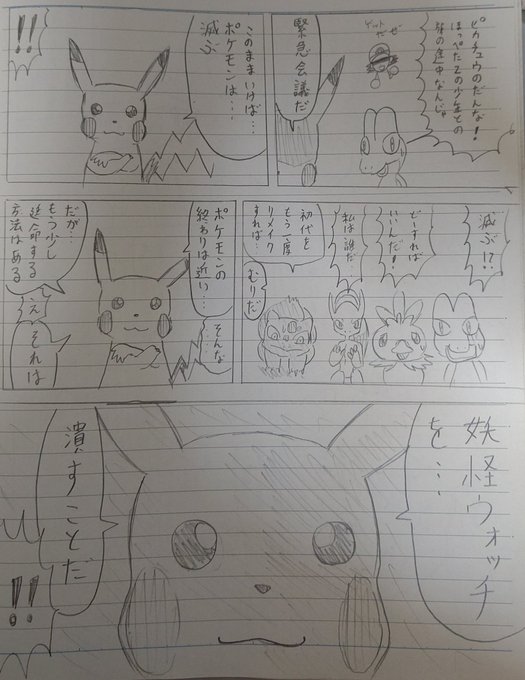 ピカチュウのだんな!
ほっぺたZの少年との
旅の途中なんじゃ
ゲットだぜ
緊急会議だ
このままいけば…
ポケモンは…
滅ぶ
!!
滅ぶ!?
どーすれば
いいんだ!
私は誰だ…
初代を
もう一度
リメイク
すれば…
むりだ
ポケモンの
終わりは近い…
そんな
だが…
もう少し
延命する
方法はある
え
それは
妖怪ウォッチ
を…
潰すことだ
!!